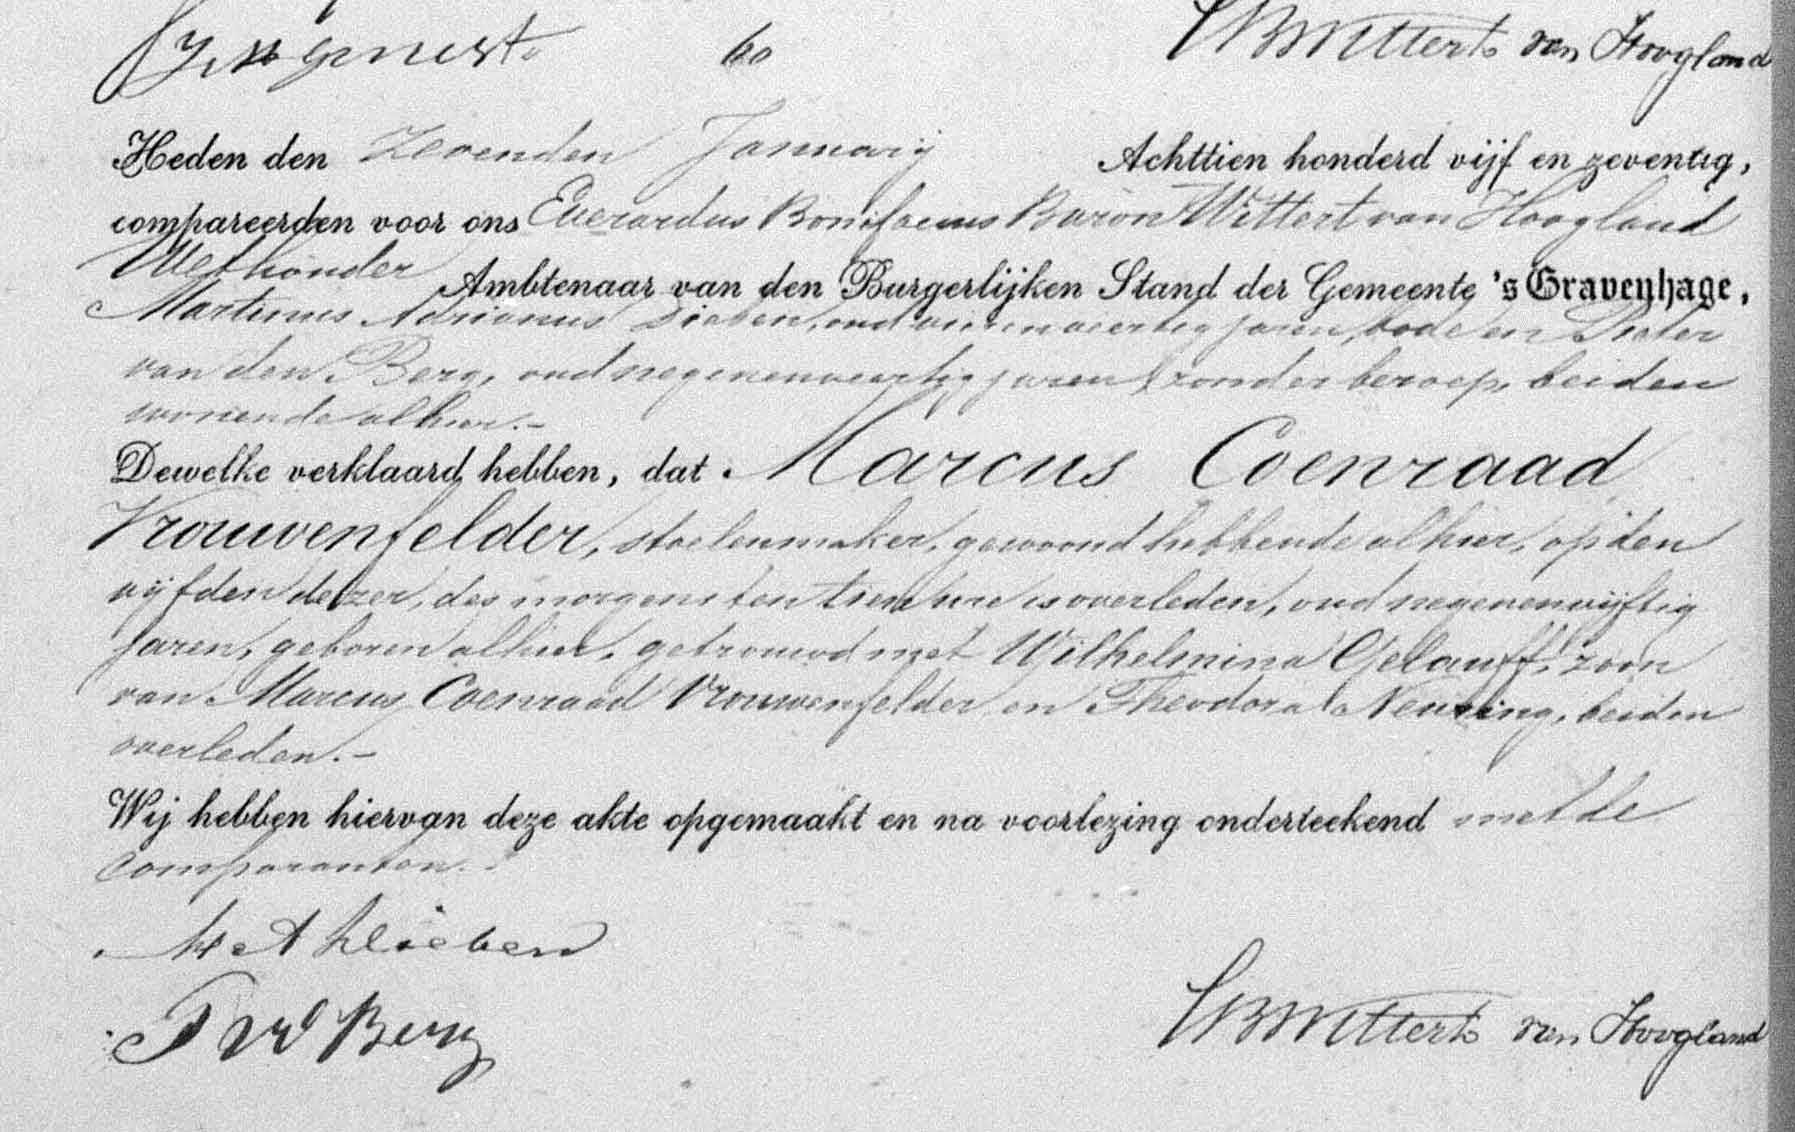 60 EBWittert van Hoogland
Heden den Zevenden Januarij Achttien honderd vijf en zeventig,
compareerden voor ons Everardus Bonifacius Baron Wittert van Hoogland
Wethouder Ambtenaar van den Burgerlijken Stand der Gemeente 's Gravenhage,
Martinus Adrianus Dieben, oud vierenveertig jaren, bode en Pieter
van den Berg, oud negenenveertig jaren, zonder beroep, beiden
wonende alhier.-
Dewelke verklaard hebben, dat Marcus Coenraad
Vrouwenfelder, stoelenmaker, gewoond hebbende alhier, op den
vijfden dezer, des morgens ten tien ure is overleden, oud negenenvijftig
jaren, geboren alhier, getrouwd met Wilhelmina Gelauff, zoon
van Marcus Coenraad Vrouwenfelder en Theodora Neusing, beiden
overleden.-
Wij hebben hiervan deze akte opgemaakt en na voorlezing onderteekend met de
comparanten.
M A Dieben
P vd Berg
EBWittert van Hoogland